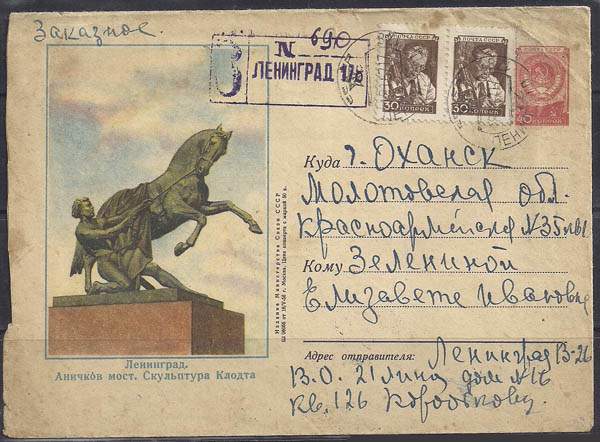 Заказное.
З
N 690
ЛЕНИНГРАД 1/в
ПОЧТА СССР
30 КОПЕЕК
ПОЧТА СССР
30 КОПЕЕК
ПОЧТА СССР
40 КОПЕЕК
Куда г. Оханск
Молотовская обл.
Красноармейская N 35 кв 1
Кому Зелениной
Елизавете Ивановне
Адрес отправителя: Ленинград В-26
В.О. 21 Линия дом N 16
кв. 126 Коробкову
Издание Министерства Связи СССР
Ленинград.
Аничков мост. Скульптура Клодта